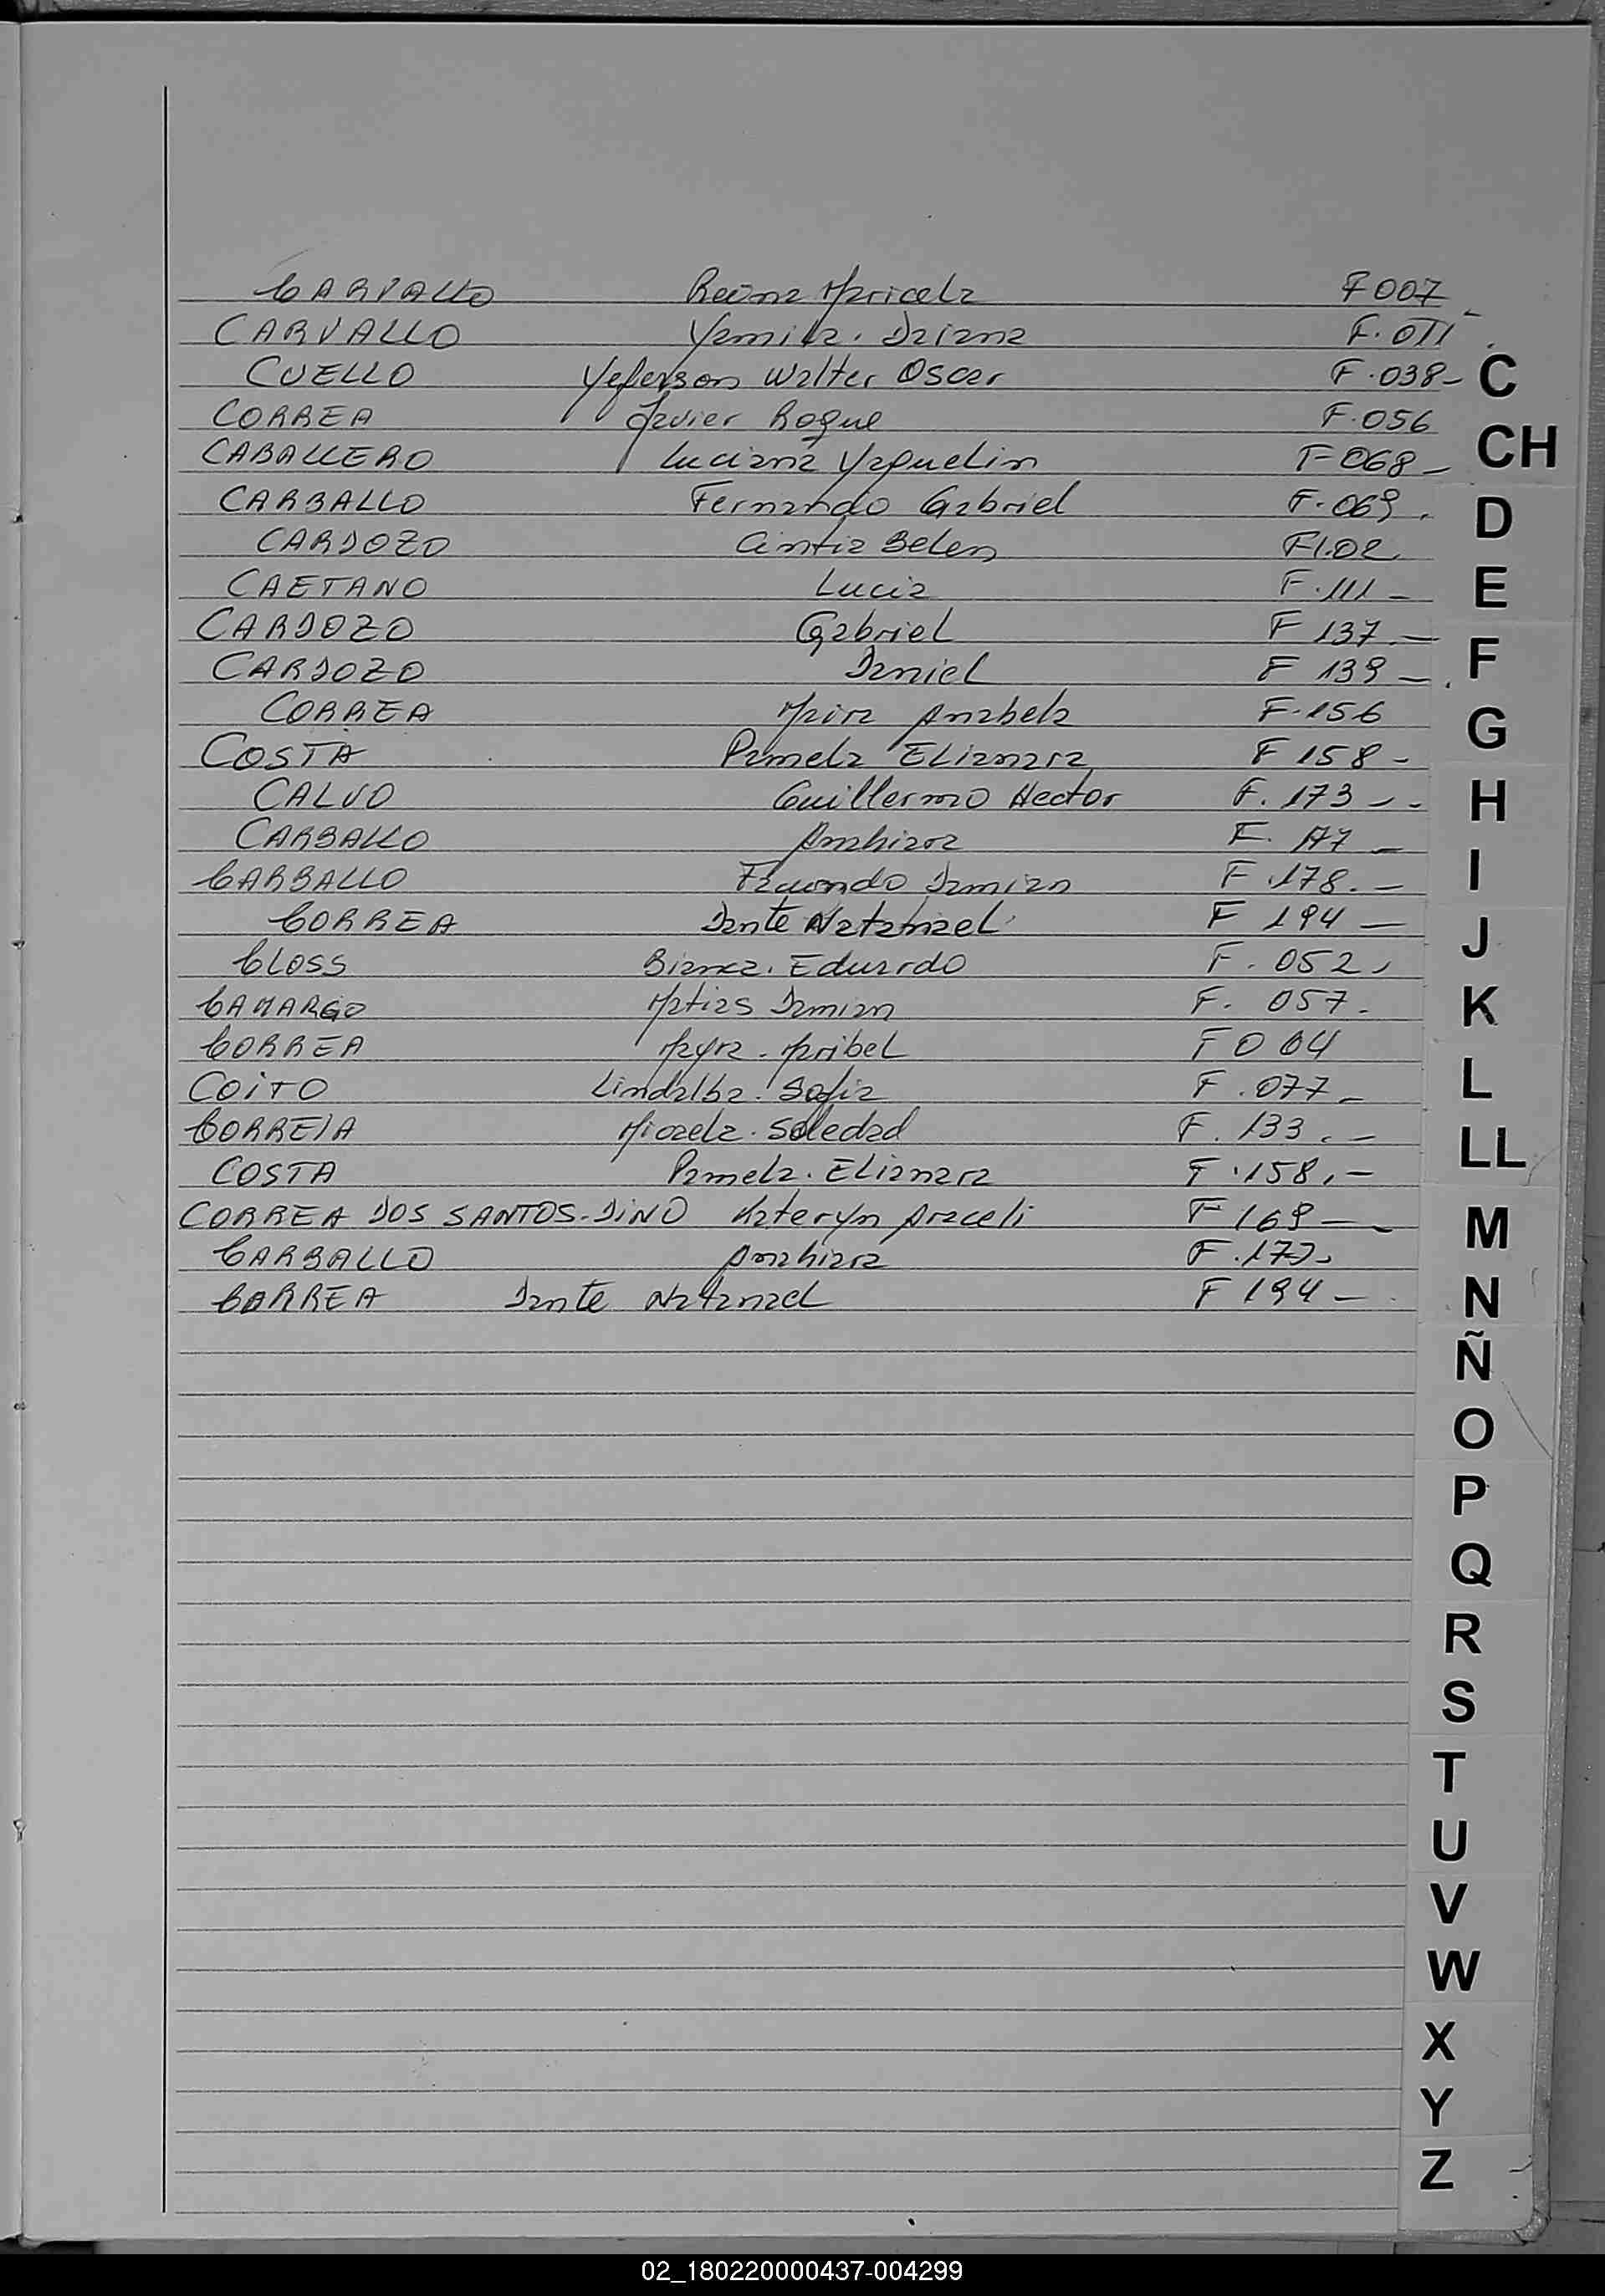 CARVALLO Reina Maricela F 007
CARVALLO Yamila. Daiana F. 011
CUELLO Yeferson Walter Oscar F. 038-
CORREA Javier Roque F. 056
CABALLERO Luciana Yaquelin F 068-
CARBALLO Fernando Gabriel F. 069.
CARDOZO Cintia Belen F 102.
CAETANO Lucia F. 111 -
CARDOZO Gabriel F 137.-
CARDOZO Daniel F 139 -.
CORREA Maira Anabela F. 156
COSTA Pamela Elianara F 158 -
CALVO Guillermo Hector F. 173 - -
CARBALLO Anahiara F. 177 -
CARBALLO Facundo Damian F. 178. -
CORREA Dante Natanael F 194 -
CLOSS Bianca. Eduardo F. 052.
CAMARGO Matias Damian F. 057.
CORREA Mayra. Maribel F 004
COiTO Lindalba. Sofia F. 077-
CORREIA Micaela. Soledad F. 133. -
COSTA Pamela. Elianara F. 158. -
CORREA DOS SANTOS-DiNO Kateryn Araceli F 169 - -
CARBALLO Anahiara F. 177.
CORREA Dante Natanael F 194 -
C
CH
D
E
F
G
H
I
J
K
L
LL
M
N
Ñ
O
P
Q
R
S
T
U
V
W
X
Y
Z
02_180220000437-004299